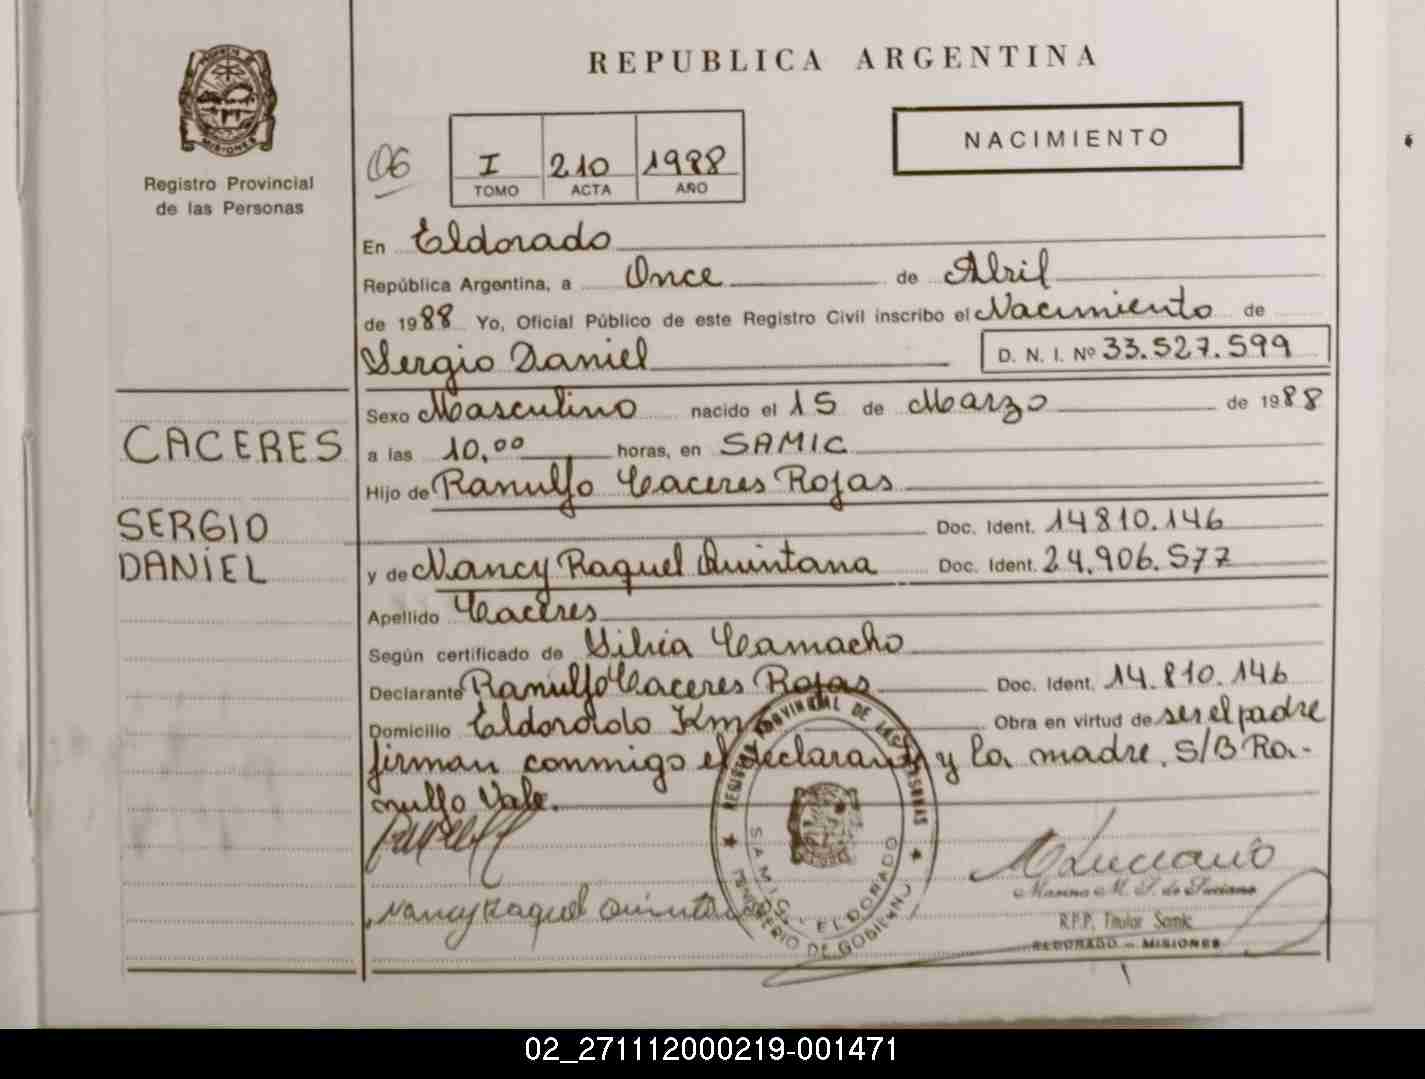 REPUBLICA ARGENTINA
PROVINCIA DE MISIONES
Registro Provincial
de las Personas
06
I 210 1988
TOMO ACTA AÑO
NACIMIENTO
En Eldorado
República Argentina, a Once de Abril
de 1988 Yo, Oficial Público de este Registro Civil inscribo el Nacimiento de
Sergio Daniel D. N. I. Nº 33.527.599
Sexo Masculino nacido el 15 de Marzo de 1988
CACERES
a las 10,00 horas, en SAMIC
Hijo de Ranulfo Caceres Rojas
SERGIO
Doc. Ident. 14810.146
DANIEL
y de Nancy Raquel Quintana Doc. Ident. 24.906.577
Apellido Caceres
Según certificado de Silvia Camacho
Declarante Ranulfo Caceres Rojas Doc. Ident. 14.810.146
Domicilio Eldorado Km Obra en virtud de ser el padre
firman conmigo el declarante y la madre. S/B Ra-
nulfo Vale.
REGISTRO PROVINCIAL DE LAS PERSONAS
SAMIC - ELDORADO
MINISTERIO DE GOBIERNO
Nancy Raquel Quintana
M Luciano
Marina M. S. de Luciano
R.P.P. Titular Samic
ELDORADO - MISIONES
02_271112000219-001471